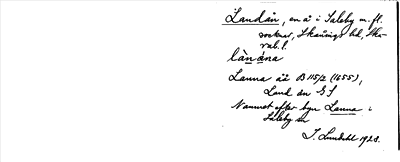 Landån, en å i Saleby m. fl.
socknar, Skånings hd, Ska-
rab. l.
lànána
Lanna åå B 115/2 (1655),
Land ån GS
Namnet efter byn Lanna i
Saleby sn
I. Lundahl 1928.